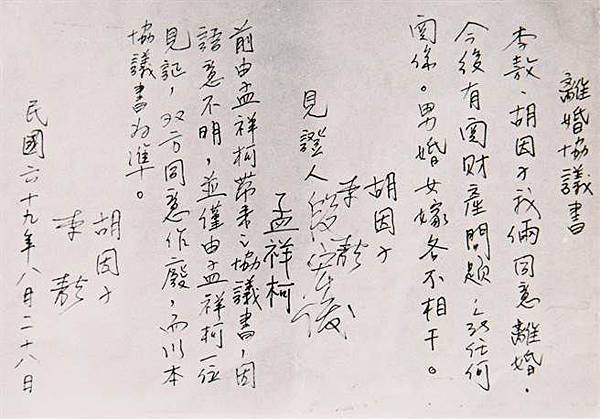 離婚協議書
李敖、胡因子我倆同意離婚.
今後有関財産問題以及任何
関係。男婚女嫁各不相干。
胡因子
李敖
見證人段宏俊
孟祥柯
前由孟祥柯帶來之協議書，因
語意不明，並僅由孟祥柯一位
見証，双方同意作廢，而以本
協議書为準。
胡因子
李敖
民國六十九年八月二十八日